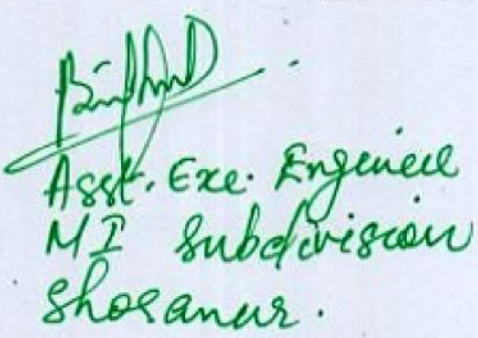 Asst. Exe. Engineer
MI Subdivision
Shoranur.